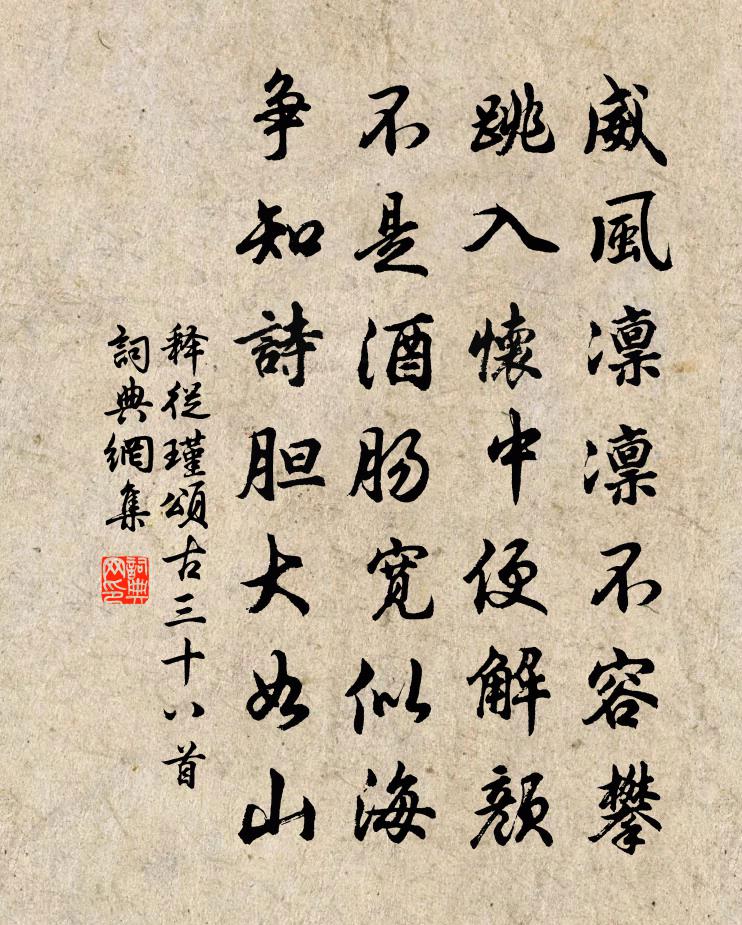 威風凛凛不容攀
跳入懷中便解顏
不是酒肠寬似海
争知詩胆大如山
释從瑾頌古三十八首
詞典網集
詞典网印